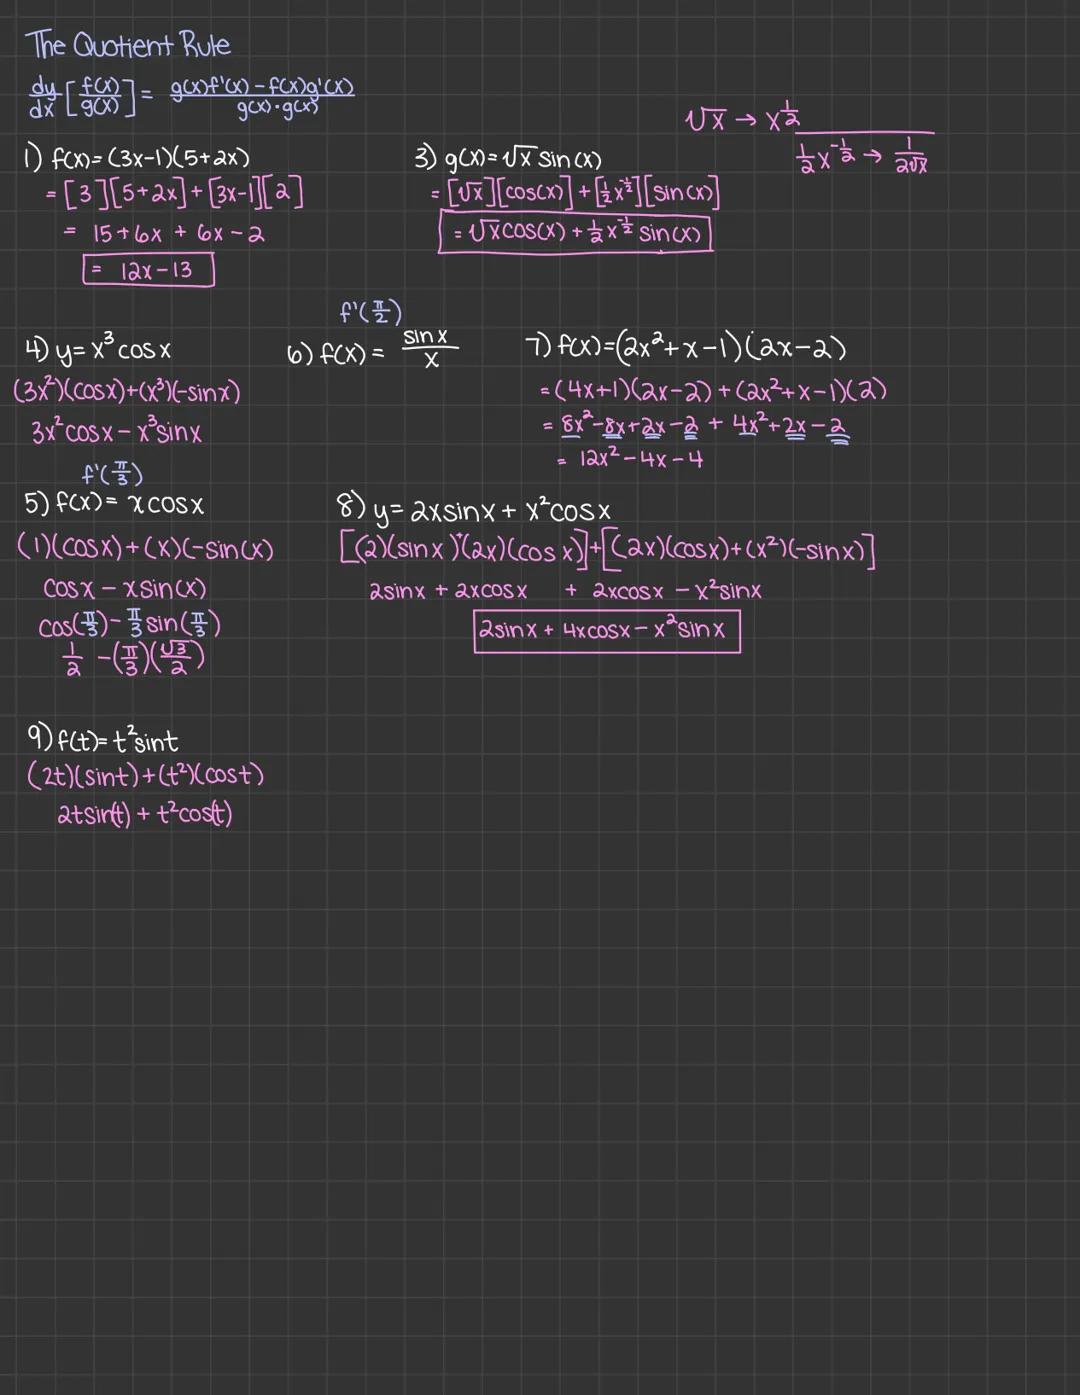 The Quotient Rule
dy/dx [f(x)/g(x)] = g(x)f'(x) - f(x)g'(x) / g(x)·g(x)
√x → x^(1/2)
1/2 x^(-1/2) → 1/(2√x)
1) f(x) = (3x-1)(5+2x)
= [3][5+2x] + [3x-1][2]
= 15+6x + 6x-2
= 12x-13
3) g(x) = √x sin(x)
= [√x][cos(x)] + [1/2 x^(-1/2)][sin(x)]
= √x cos(x) + 1/2 x^(-1/2) sin(x)
4) y = x³ cos x
(3x²)(cosx)+(x³)(-sinx)
3x² cosx - x³ sinx
f'(π/2)
6) f(x) = sin x / x
7) f(x)=(2x²+x-1)(2x-2)
= (4x+1)(2x-2) + (2x²+x-1)(2)
= 8x²-8x+2x-2 + 4x²+2x-2
= 12x²-4x-4
f'(π/3)
5) f(x) = x cosx
(1)(cosx)+(x)(-sin(x)
cosx - x sin(x)
cos(π/3) - π/3 sin(π/3)
1/2 - (π/3)(√3/2)
8) y = 2xsinx + x²cosx
[(2)(sinx)+(2x)(cosx)]+[(2x)(cosx)+(x²)(-sinx)]
2sinx + 2xcosx + 2xcosx - x²sinx
2sinx + 4xcosx - x²sinx
9) f(t)= t²sint
(2t)(sint)+(t²)(cost)
2tsin(t) + t²cos(t)